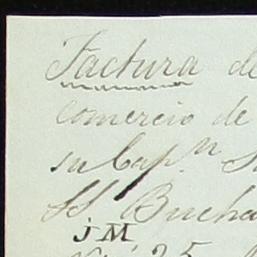 Factura de
Comercio de
su Capn
SS Bucha
JM